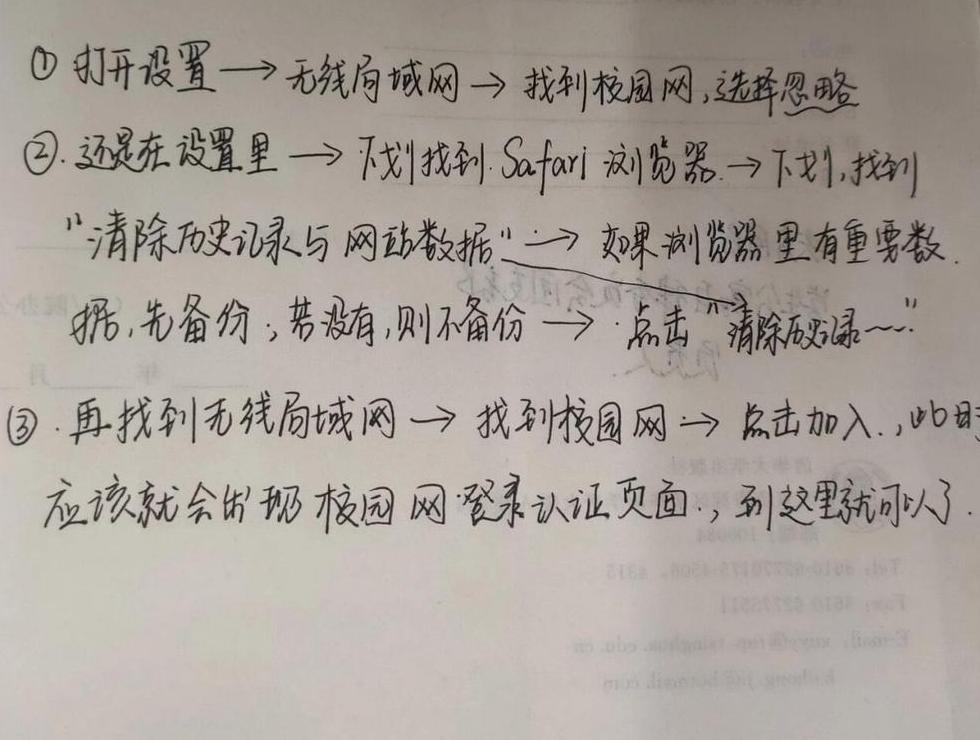 ① 打开设置→无线局域网→找到校园网,选择忽略
②.还是在设置里→下划找到.Safari浏览器.→下划,找到
"清除历史记录与网站数据"→如果浏览器里有重要数.
据,先备份;若没有,则不备份→点击"清除历史记录~~"
③.再找到无线局域网→找到校园网→点击加入.,此时
应该就会出现校园网登录认证页面.,到这里就可以了.